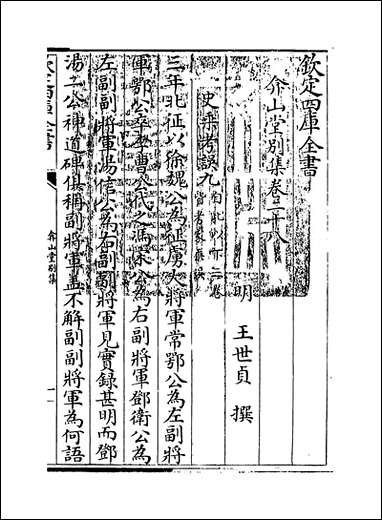 欽定四庫全書
弇山堂別集卷二十八
明 王世貞 撰
史乘考誤九
三年北征以徐魏公為征虜大將軍常鄂公為左副將
軍鄂公卒李曹公代之馮宋公為右副將軍鄧衛公為
左副副將軍湯信公為右副副將軍見實錄甚明而鄧
湯二公神道碑俱稱副將軍蓋不解副副將軍為何語
弇山堂別集
一